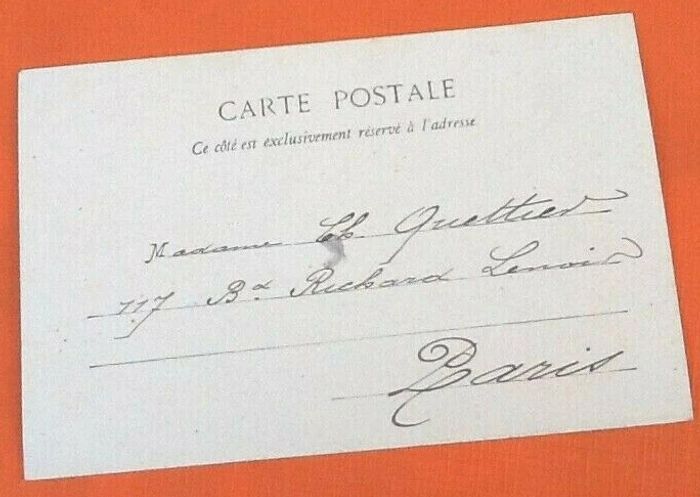 CARTE POSTALE
Ce côté est exclusivement réservé à l'adresse
Madame Ch. Quettier
117 Bd Richard Lenoir
Paris